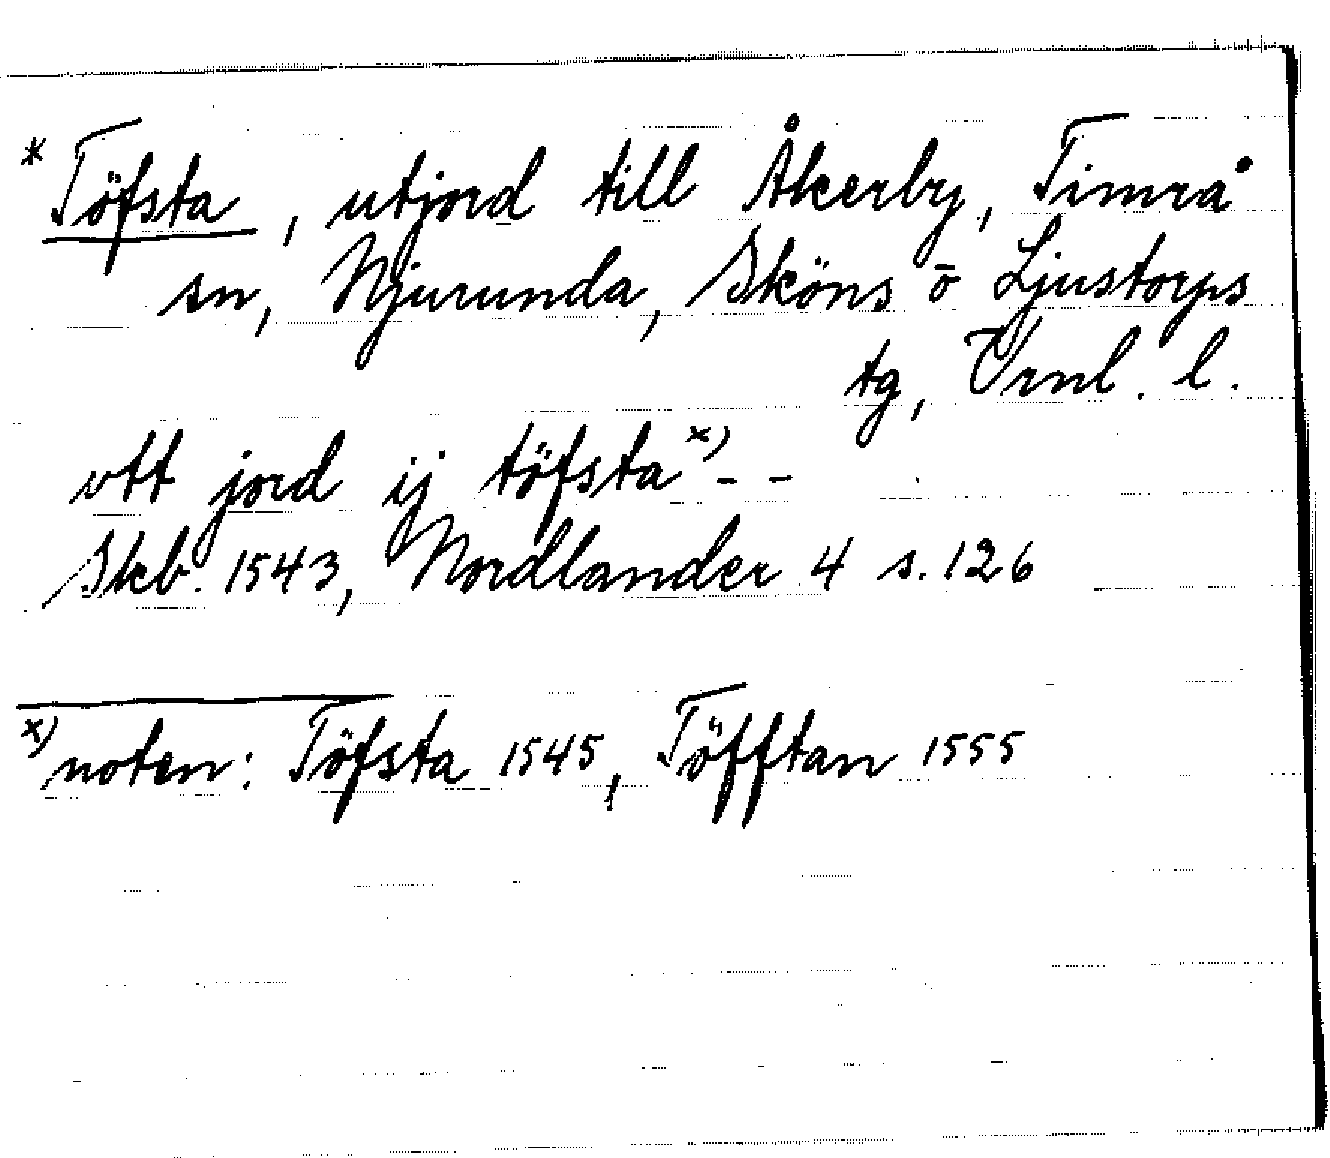 * Töfsta, utjord till Åkerby, Timrå
sn, Njurunda, Sköns ō Ljustorps
tg, Vrnl. l.
vtt jord ij töfsta x) - -
Skb. 1543, Nordlander 4 s. 126
x) noten: Töfsta 1545, Töfftan 1555